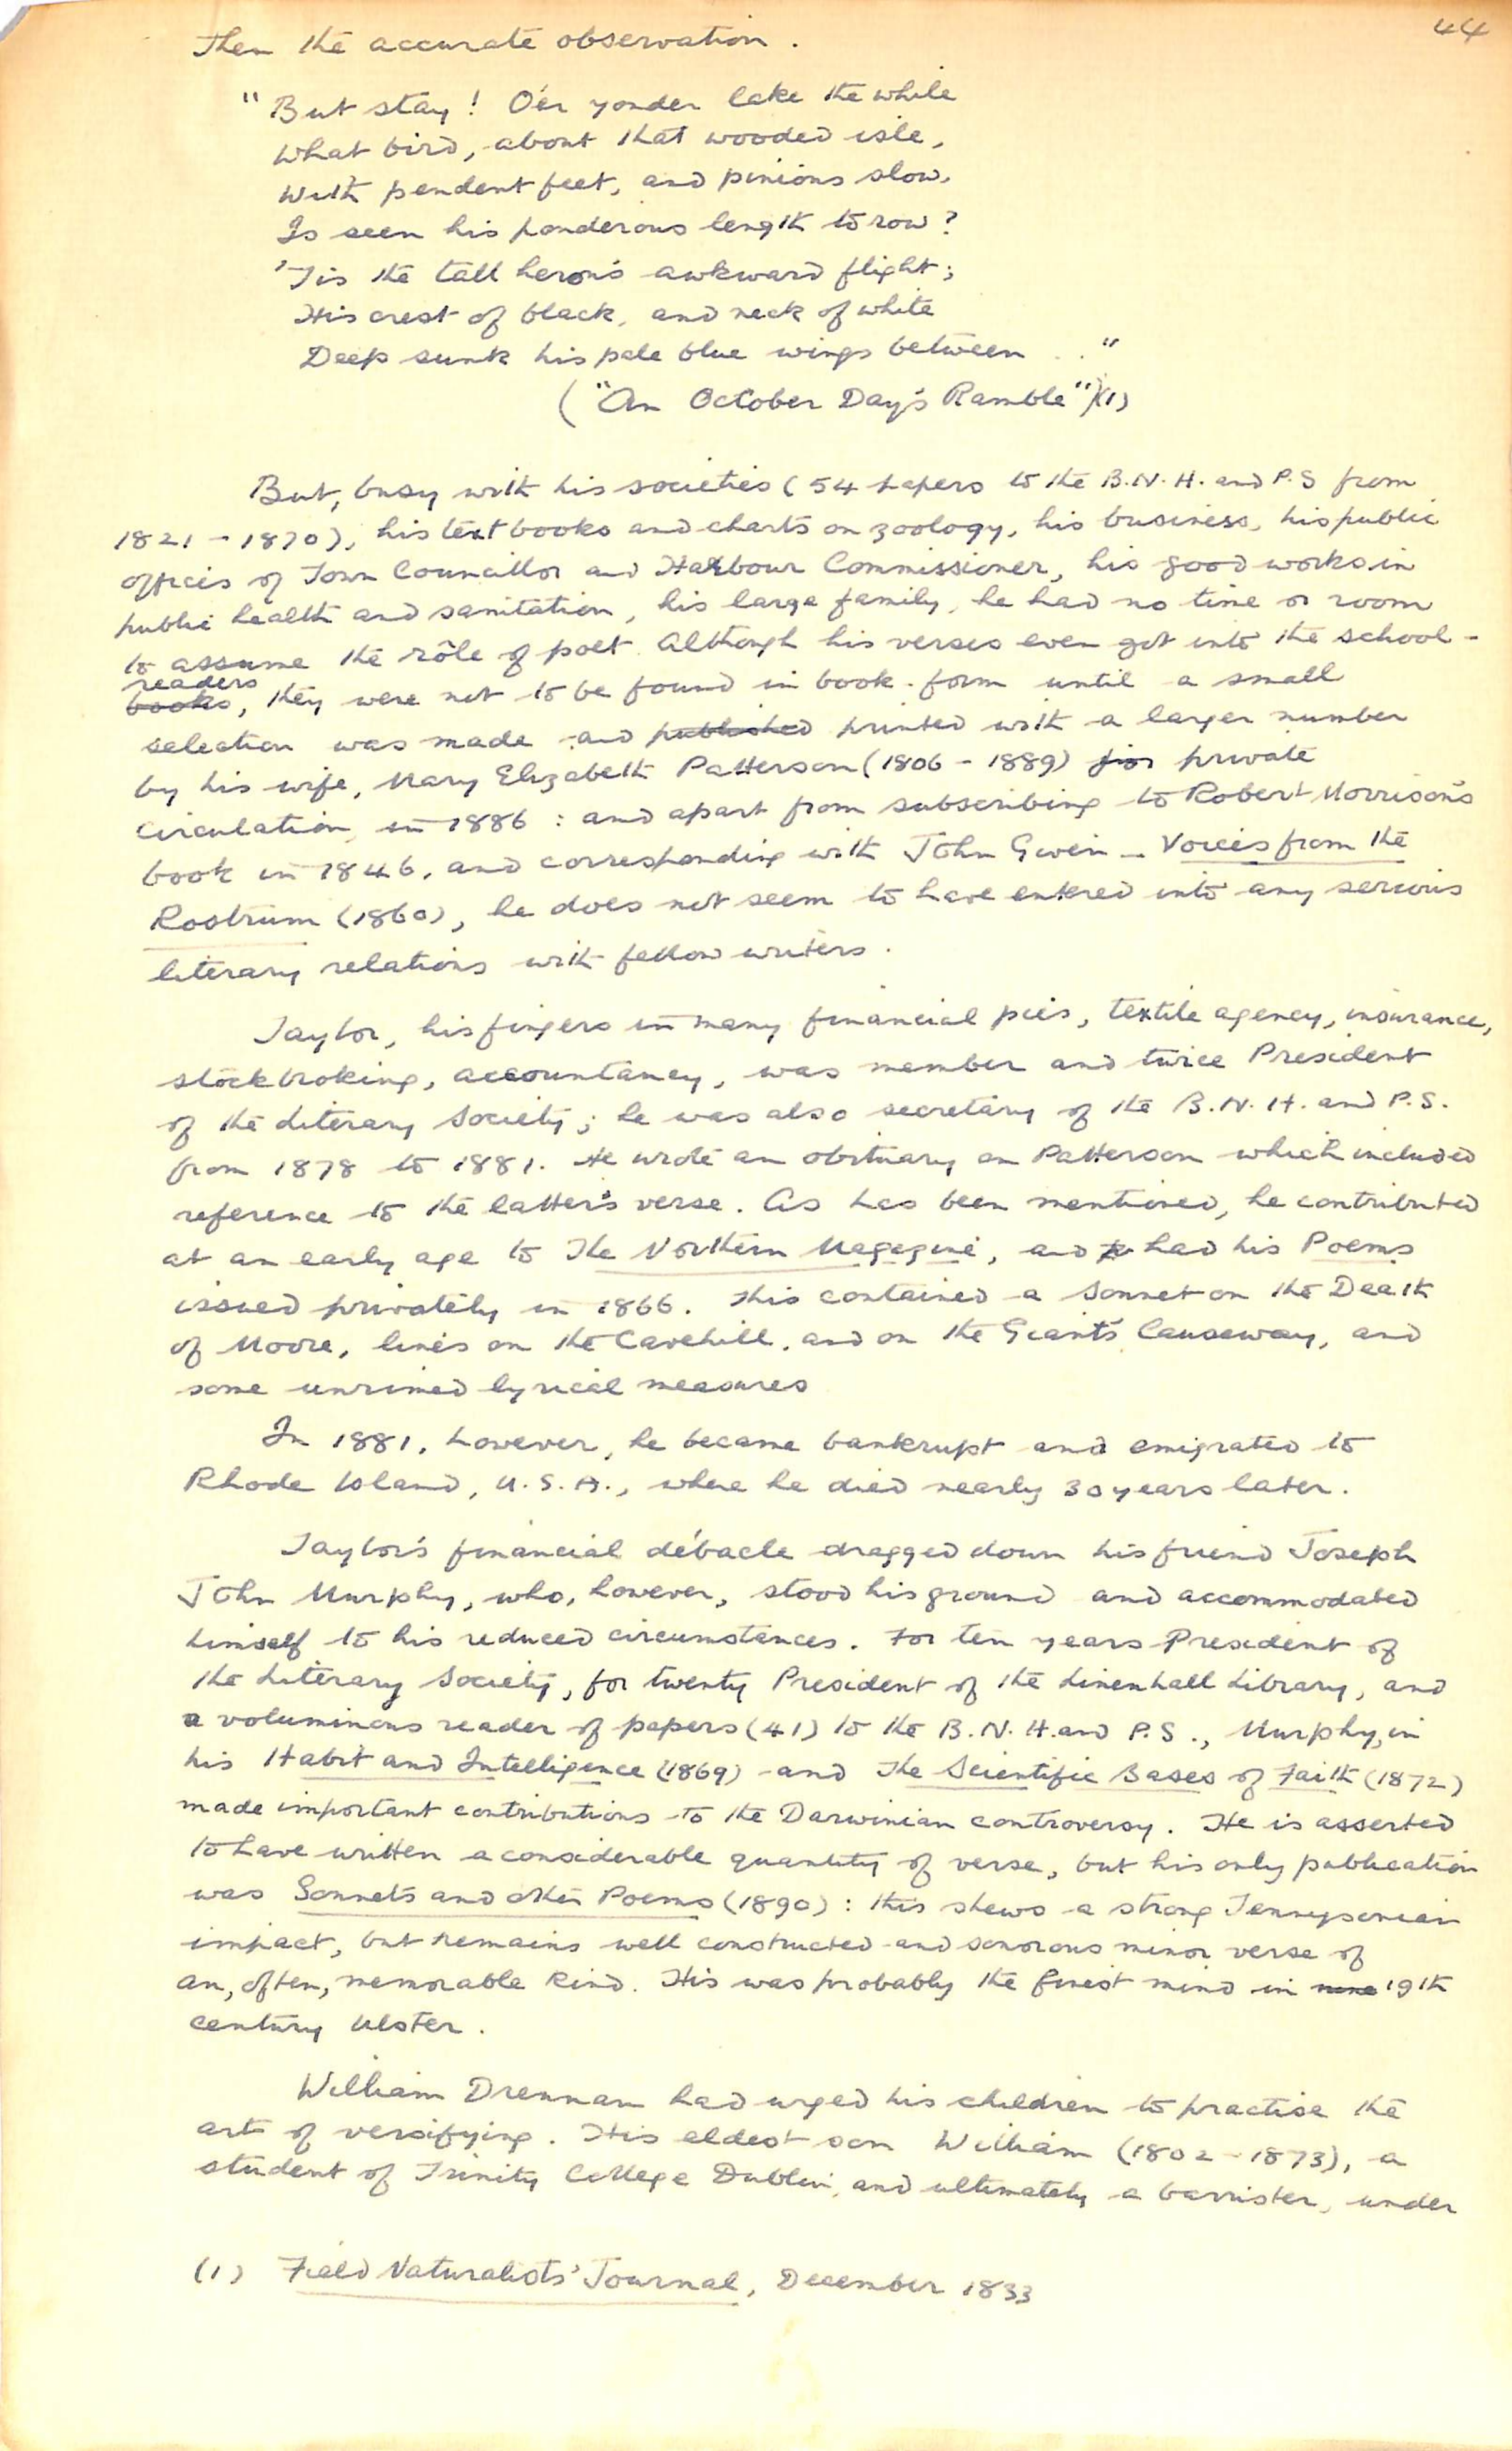 44
Then the accurate observation.
"But stay! O'er yonder lake the while
What bird, about that wooded isle,
With pendent feet, and pinions slow,
Is seen his ponderous length to row?
'Tis the tall heron's awkward flight;
His crest of black, and neck of white
Deep sunk his pale blue wings between . ."
("An October Day's Ramble")(1)
But, busy with his societies (54 papers to the B.N.H. and P.S from
1821-1870), his text books and charts on zoology, his business, his public
offices of Town Councillor and Harbour Commissioner, his good works in
public health and sanitation, his large family, he had no time or room
to assume the rôle of poet. Although his verses even got into the school-
readers
books, they were not to be found in book-form until a small
selection was made and published printed with a larger number
by his wife, Mary Elizabeth Patterson (1806-1889) for private
circulation in 1886: and apart from subscribing to Robert Morrison's
book in 1846, and corresponding with John Gwen - Voices from the
Rostrum (1860), he does not seem to have entered into any serious
literary relations with fellow writers.
Taylor, his fingers in many financial pies, textile agency, insurance,
stockbroking, accountancy, was member and twice President
of the Literary Society; he was also secretary of the B.N.H. and P.S.
from 1878 to 1881. He wrote an obituary on Patterson which included
reference to the latter's verse. As has been mentioned, he contributed
at an early age to The Northern Magazine, and had his Poems
issued privately in 1866. This contained a Sonnet on the Death
of Moore, lines on the Cavehill, and on the Giant's Causeway, and
some unrimed lyrical measures
In 1881, however, he became bankrupt and emigrated to
Rhode Island, U.S.A., where he died nearly 30 years later.
Taylor's financial débacle dragged down his friend Joseph
John Murphy, who, however, stood his ground and accommodated
himself to his reduced circumstances. For ten years President of
the Literary Society, for twenty President of the Linenhall Library, and
a voluminous reader of papers (41) to the B.N.H. and P.S., Murphy, in
his Habit and Intelligence (1869) and The Scientific Bases of Faith (1872)
made important contributions to the Darwinian controversy. He is asserted
to have written a considerable quantity of verse, but his only publication
was Sonnets and other Poems (1890): this shews a strong Tennysonian
impact, but remains well constructed and sonorous minor verse of
an, often, memorable kind. His was probably the finest mind in nine 19th
century Ulster.
William Drennan had urged his children to practise the
art of versifying. His eldest son William (1802-1873), a
student of Trinity College Dublin, and ultimately a barrister, under
(1) Field Naturalists' Journal, December 1833